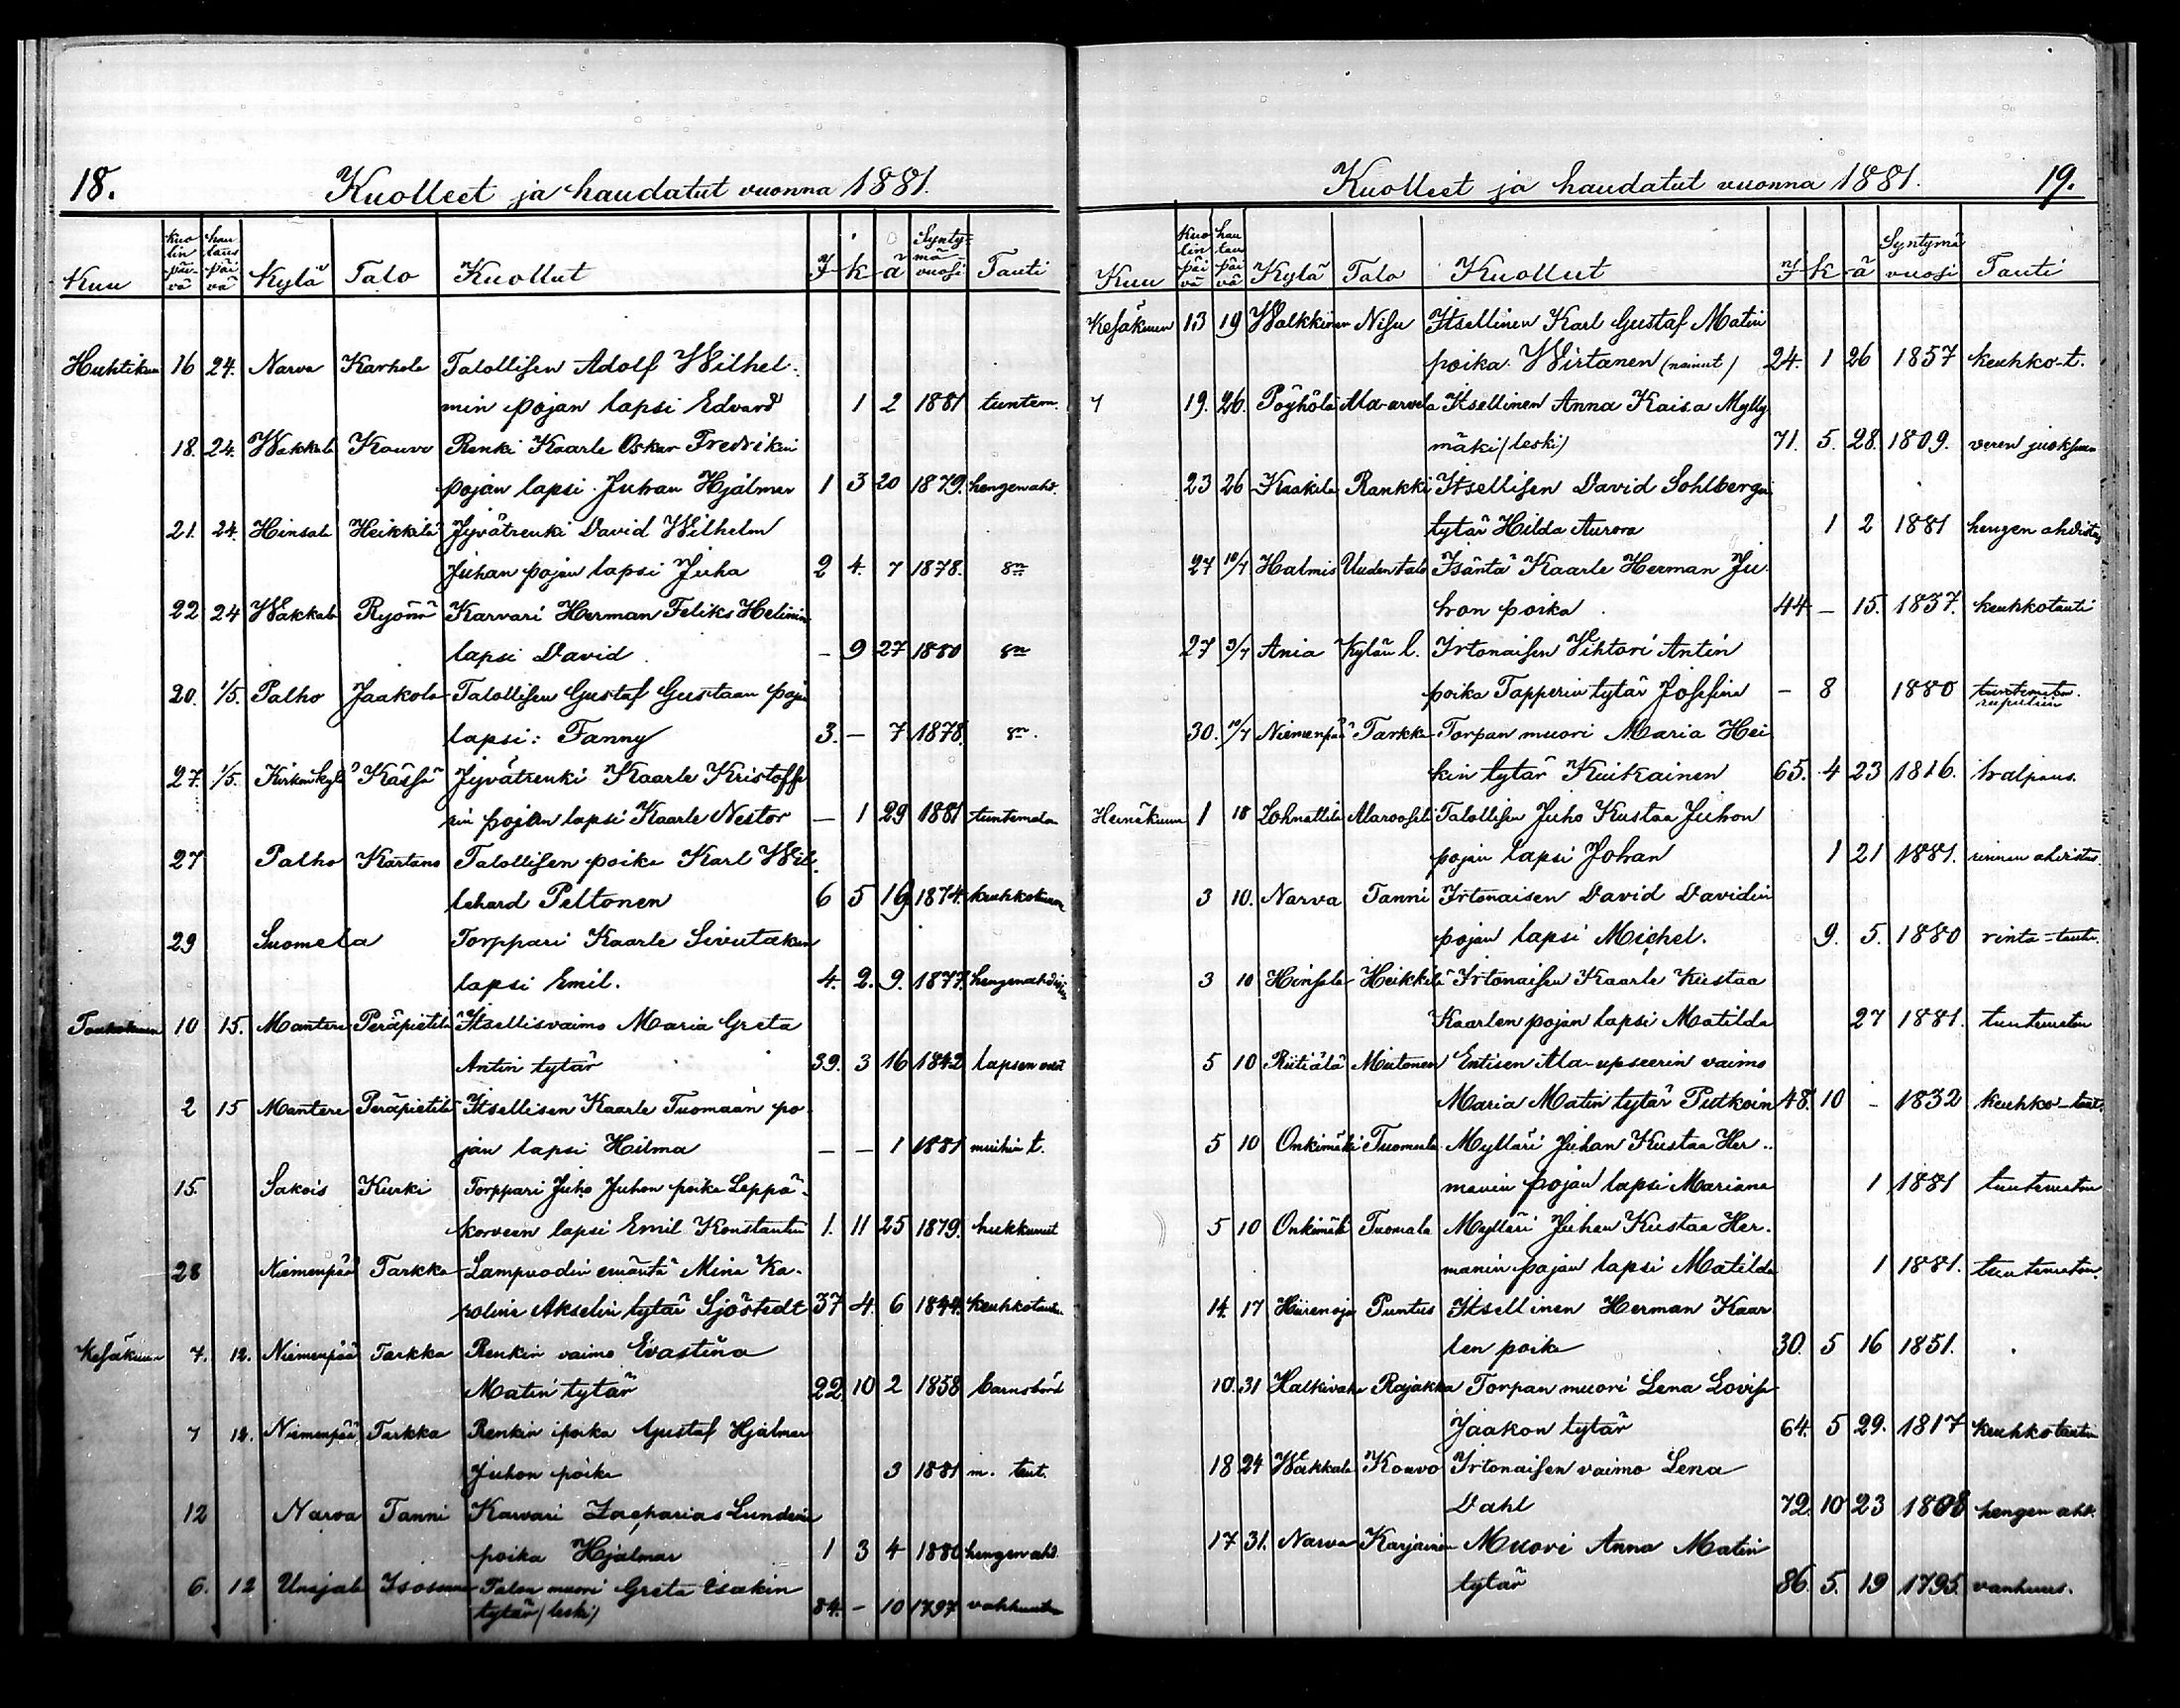 18.
Kuolleet ja haudatut vuonna 1881.
Kuu kuo lin päi vä hau taus päi vä Kylä Talo Kuollut V k ä Synty mä vuosi Tauti
Huhtikuu 16 24. Narva Karhola Talollisen Adolf Wilhel
min pojan lapsi Edvard 1 2 1881 tuntem.
18. 24. Wakkala Kauvo Renki Kaarle Oskar Fredrikin
pojan lapsi Juhan Hjalmar 1 3 20 1879. hengenahd.
21. 24. Hinsala Heikkilä Jyvätrenki David Wilhelm
Juhan pojan lapsi Juha 2 4. 7 1878.
22 24 Wakkala Ryömä Karvari Herman Feliks Helinin
lapsi David – 9 27 1880
20. 1/5. Palho Jaakola Talollisen Gustaf Gustaan pojan
lapsi: Fanny 3. – 7 1878.
27. 1/5. Kirkonkylä Kässä Jyvätrenki Kaarle Kristoffe
rin pojan lapsi Kaarle Nestor – 1 29 1881 tuntematon
27 Palho Kartano Talollisen poika Karl Wil
lehard Peltonen 6 5 16 1874. keuhkokuume
29 Suomela Torppari Kaarle Sivutakan
lapsi Emil. 4. 2. 9. 1877. hengenahdistus
Toukokuu 10 15. Mantere Peräpietilä Itsellisvaimo Maria Greta
Antin tytär 39. 3 16 1842 lapsen
2 15 Mantere Peräpietilä Itsellisen Kaarle Tuomaan po
jan lapsi Hilma – – 1 1881 muihin t.
15. Sakois Kurki Torppari Juho Juhon poika Leppä-
korveen lapsi Emil Konstantin 1. 11 25 1879. hukkunut
28 Niemenpää Tarkka Lampuodin emäntä Mina Ka-
roline Akselin tytär Sjöstedt 37 4. 6 1844. keuhkotauti
Kesäkuu 7. 12. Niemenpää Tarkka Renkin vaimo Evastina
Matin tytär 22 10 2 1858 barnsbörd
7 12. Niemenpää Tarkka Renkin poika Gustaf Hjalmar
Juhon poika 3 1881 m. taut.
12 Narva Tanni Karvari Zacharias Lundin
poika Hjalmar 1 3 4 1880 hengenahd.
6. 12 Unajala Talon muori Greta Esakin
tytär (leski) 84. – 10 1797
Kuolleet ja haudatut vuonna 1881. 19.
Kuu kuo lin päi vä hau tau päi vä Kylä Talo Kuollut V k ä Syntymä vuosi Tauti
Kesäkuu 13 19 Walkkinen Nisu Itsellinen Karl Gustaf Matin
poika Wirtanen (nainut) 24. 1 26 1857 keuhko-t.
19. 26. Pöyhölä Ala-arvela Itsellinen Anna Kaisa Mylly
mäki (leski) 71. 5. 28. 1809. veren juoksu
23 26 Kaakila Rankki Itsellisen David Sohlbergin
tytär Hilda Aurora 1 2 1881 hengen ahdistus
27 10/7 Halmis Uudentalo Isäntä Kaarle Herman Ju
hon poika 44 – 15. 1837. keuhkotauti
27 3/7 Ania Kylän l. Irtonaisen Wihtori Antin
poika Tapperin tytär Josefina – 8 1880 tuntematon
30. 10/7 Niemenpää Tarkka Torpan muori Maria Hei
kin tytär Kuikainen 65. 4 23 1816. halpaus.
Heinäkuu 1 18 Lohnattila Alaroosila Talollisen Juho Kustaa Juhon
pojan lapsi Johan 1 21 1881. rinnan ahdistus
3 10. Narva Tanni Irtonaisen David Davidin
pojan lapsi Michel. 9. 5. 1880 rinta-tauti
3 10 Hinsala Heikkilä Irtonaisen Kaarle Kustaa
Kaarlen pojan lapsi Matilda 27 1881. tuntematon
5 10 Riitiälä Mutonen Entisen Ala-upseerin vaimo
Maria Matin tytär Putkoin 48. 10 – 1832 keuhko-taut.
5 10 Onkimäki Tuomala Mylläri Juhan Kustaa Her..
manin pojan lapsi Mariana 1 1881 tuntematon
5 10 Onkimäki Tuomala Mylläri Juhan Kustaa Her.
manin pojan lapsi Matilda 1 1881. tuntematon.
14. 17 Hiirenoja Puntus Itsellinen Herman Kaar
len poika 30. 5 16 1851.
10. 31 Halkivaha Rajakka Torpan muori Lena Lovisa
Jaakon tytär 64. 5 29. 1817 keuhkotauti
18 24 Wakkala Kouvo Irtonaisen vaimo Lena
Dahl 72. 10 23 1808 hengen ahd.
17 31. Narva Karjainen Muori Anna Matin
tytär 86. 5. 19 1795. vanhuus.